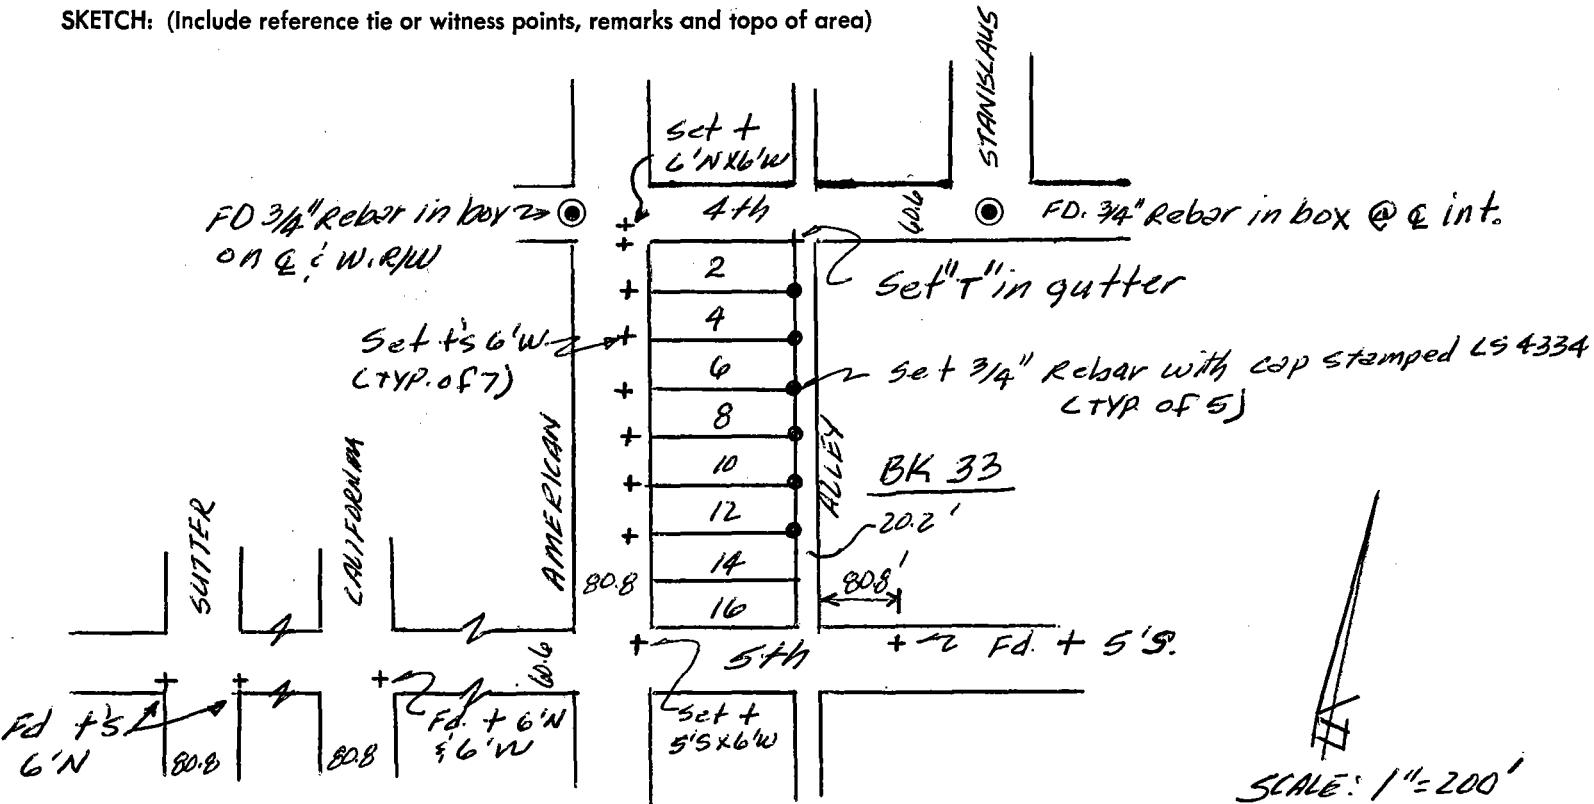 SKETCH: (Include reference tie or witness points, remarks and topo of area)
STANISLAUS
Set +
6'N X 6'W
FD 3/4" Rebar in box
on ℄ & W. R/W
4th
60.6
FD. 3/4" Rebar in box @ ℄ int.
Set "T" in gutter
2
4
6
8
10
12
14
16
Set +'s 6'W
(TYP. of 7)
Set 3/4" Rebar with cap stamped LS 4334
(TYP of 5)
AMERICAN
ALLEY
BK 33
20.2'
80.8'
SUTTER
CALIFORNIA
80.8
60.6
5th
Fd. + 5'S.
Fd +'s
6'N
80.8
80.8
Fd. + 6'N
& 6'W
Set +
5'S X 6'W
SCALE: 1"=200'